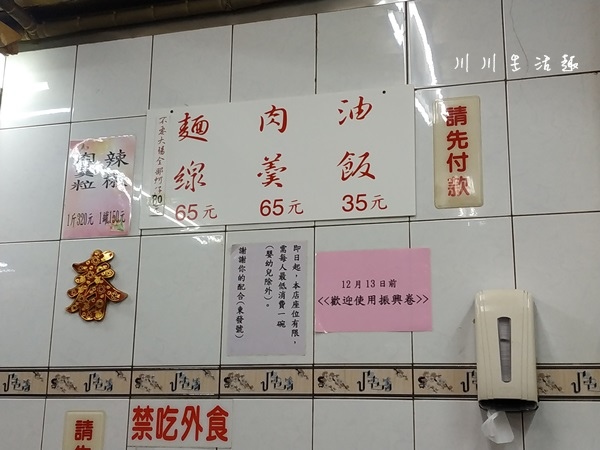 川川生活趣
油飯
35元
肉羹
65元
麵線
65元
請先付款
辣椒
1斤320元 1罐160元
即日起,本店座位有限,
需每人最低消費一碗
(嬰幼兒除外)。
謝謝你的配合(東發號)
12月13日前
<<歡迎使用振興卷>>
禁吃外食
請